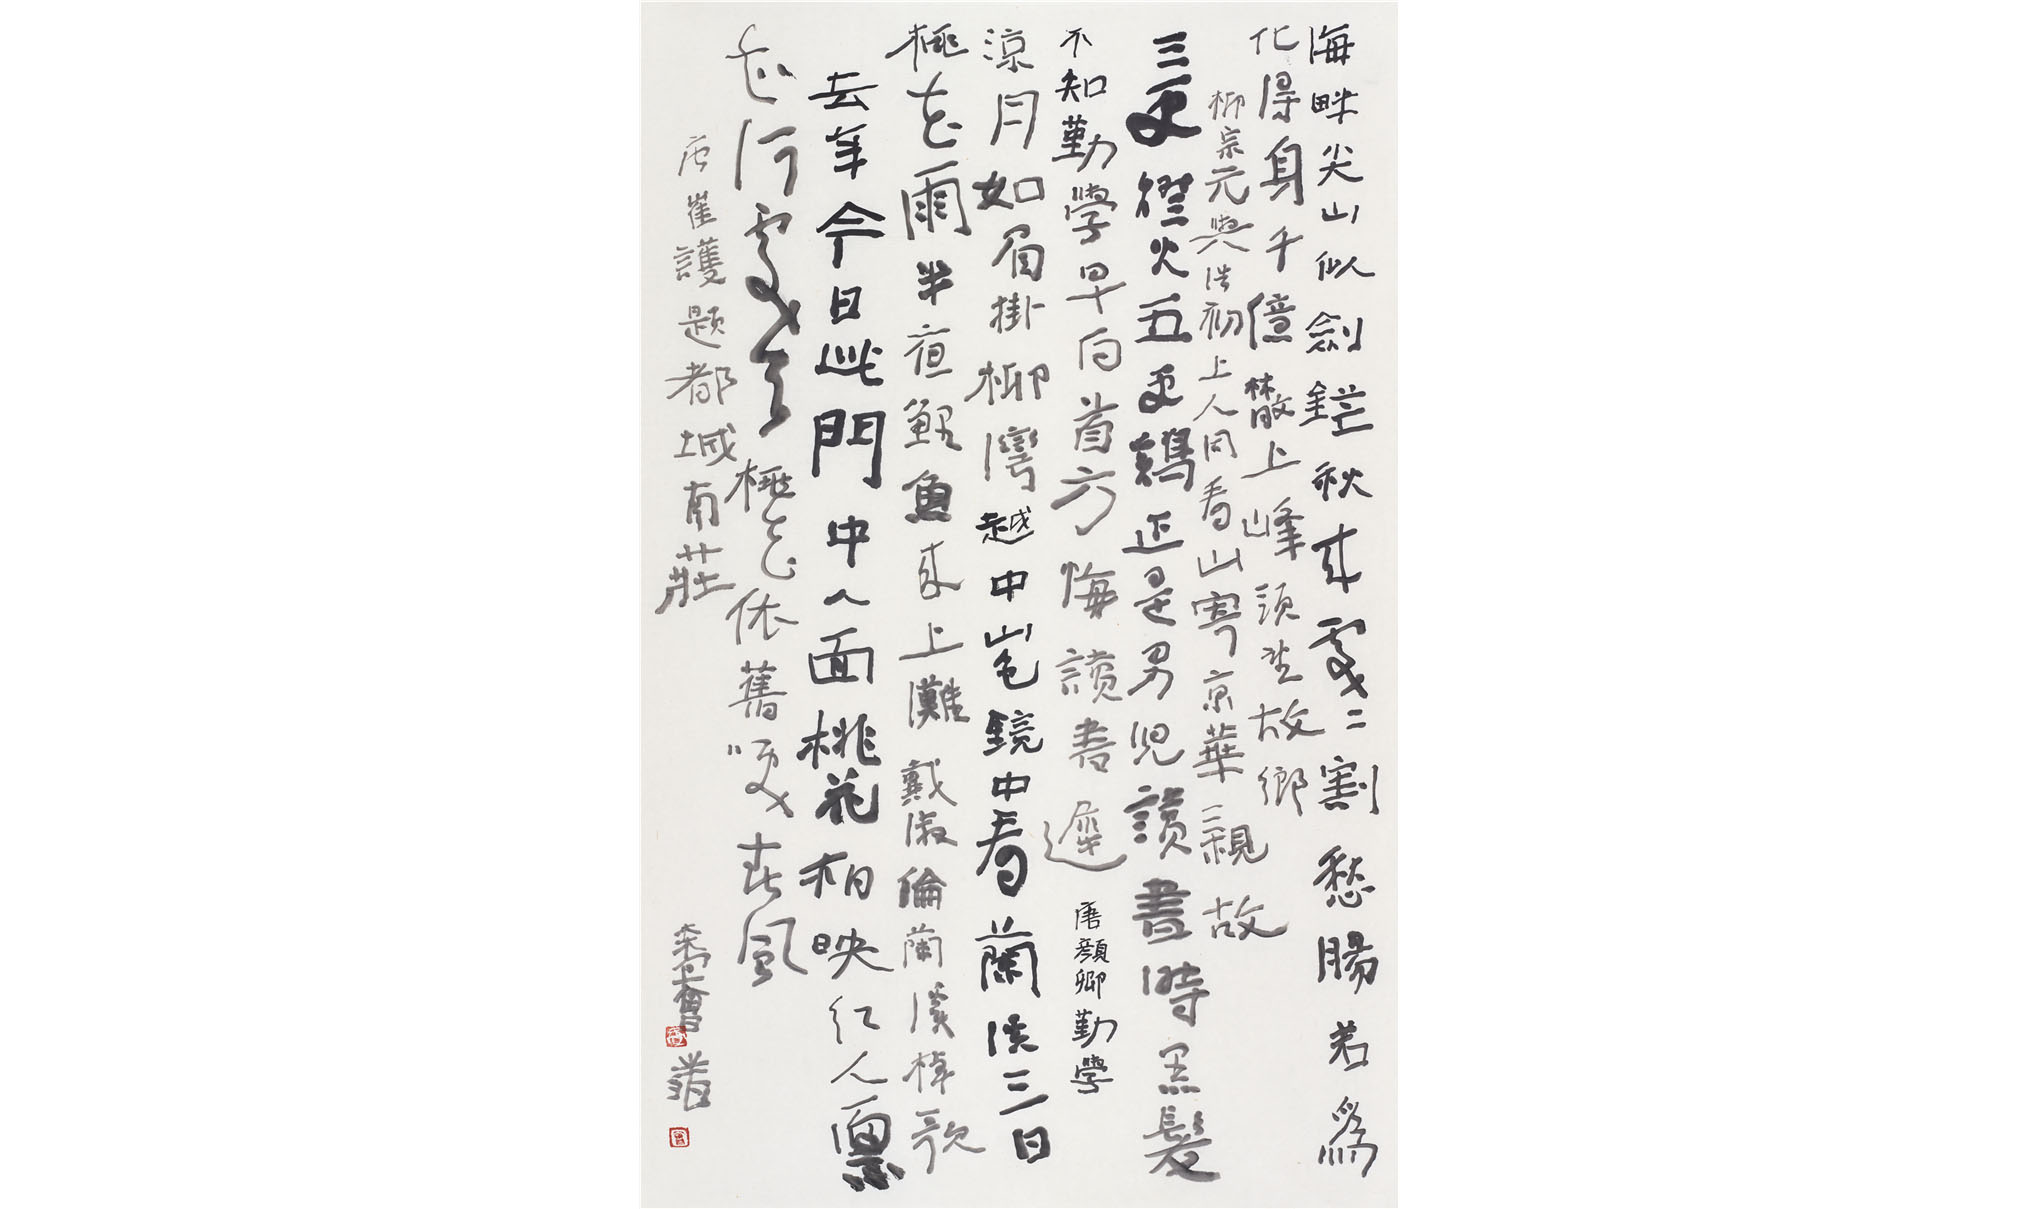 海畔尖山似劍鋩秋來處〻割愁腸若爲
化得身千億散上峰頭望故鄉
柳宗元與浩初上人同看山寄京華親故
三更燈火五更鷄正是男兒讀書時黑髮
不知勤學早白首方悔讀書遲 唐顏卿勤學
涼月如眉掛柳灣越中山色鏡中看蘭溪三日
桃花雨半夜鯉魚來上灘 戴淑倫蘭溪棹歌
去年今日此門中人面桃花相映紅人面
不知何處去桃花依舊咲春風
唐崔護題都城南莊